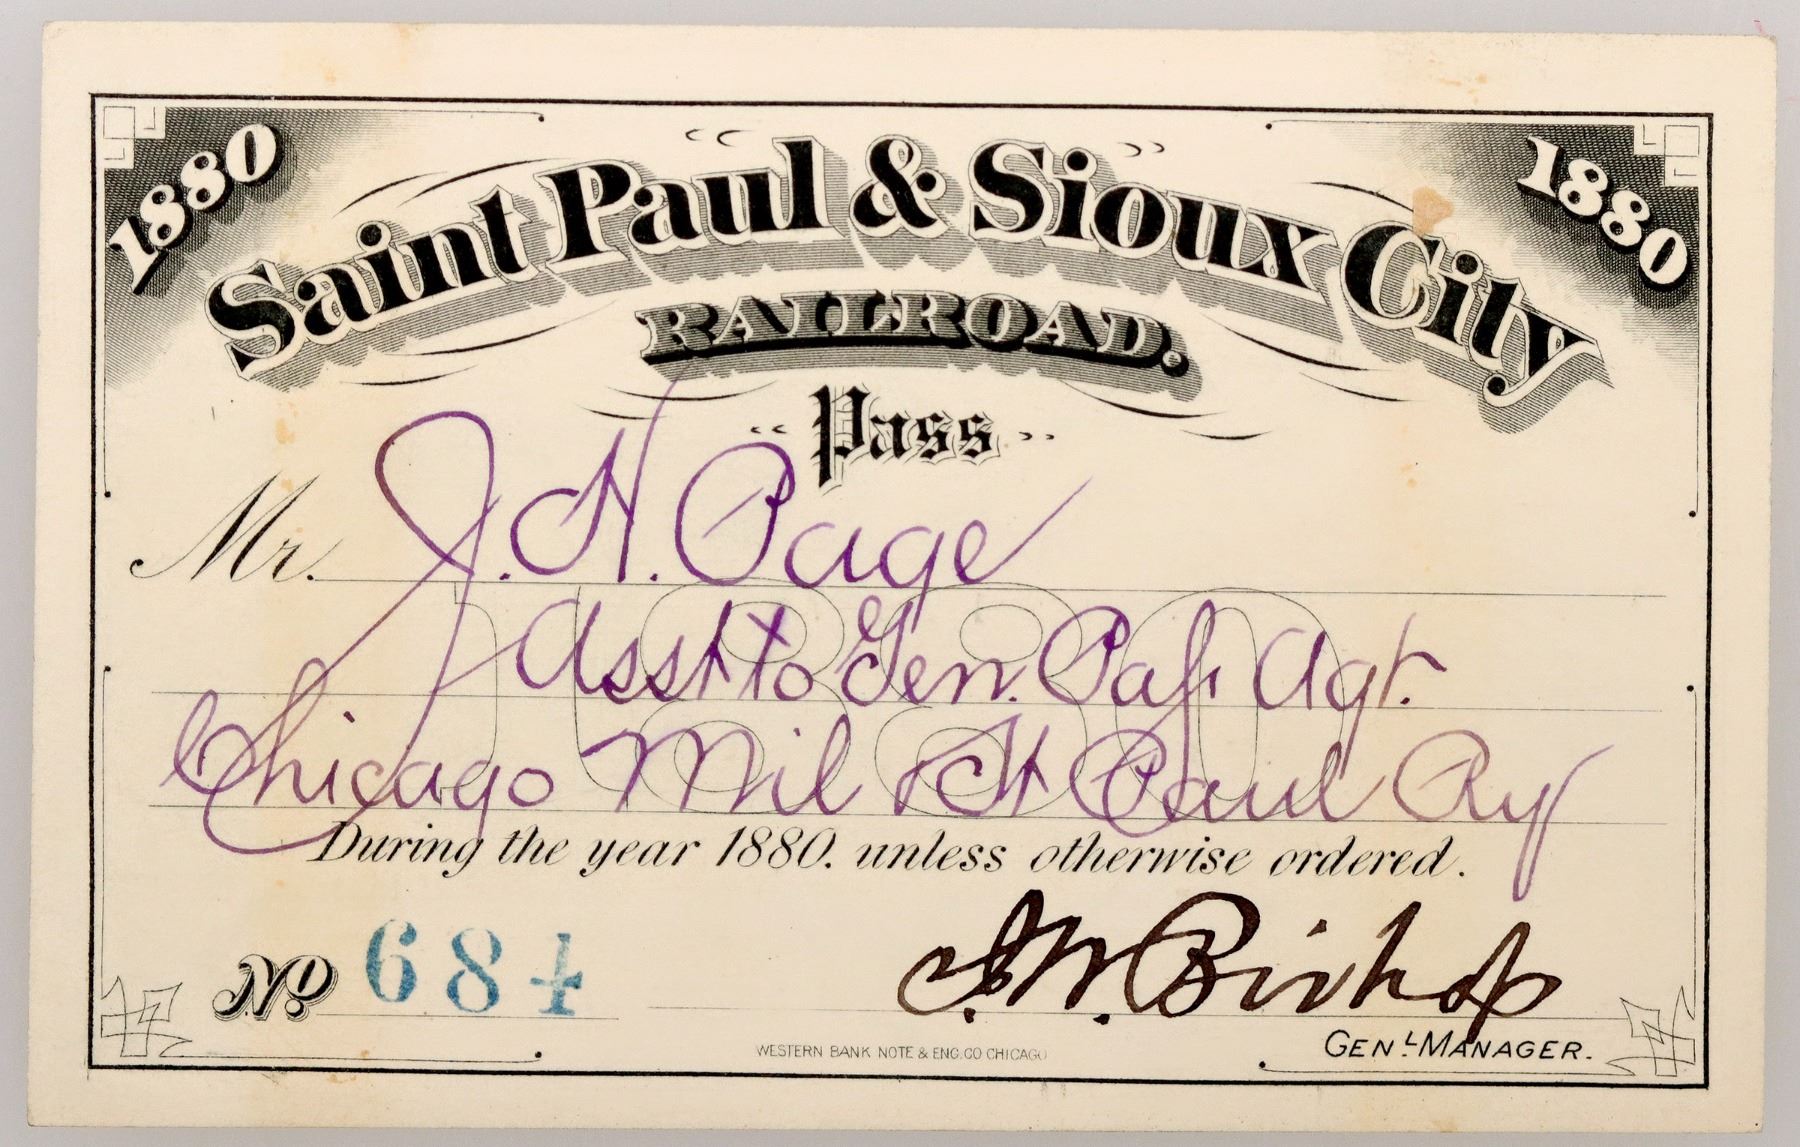 1880 1880
Saint Paul & Sioux City
RAILROAD.
Pass
Mr. J. H. Page
Asst to Gen. Pass Agt.
Chicago Mil & St Paul Ry
1880
During the year 1880. unless otherwise ordered.
No. 684
J. W. Bishop
GENL MANAGER.
WESTERN BANK NOTE & ENG. CO CHICAGO